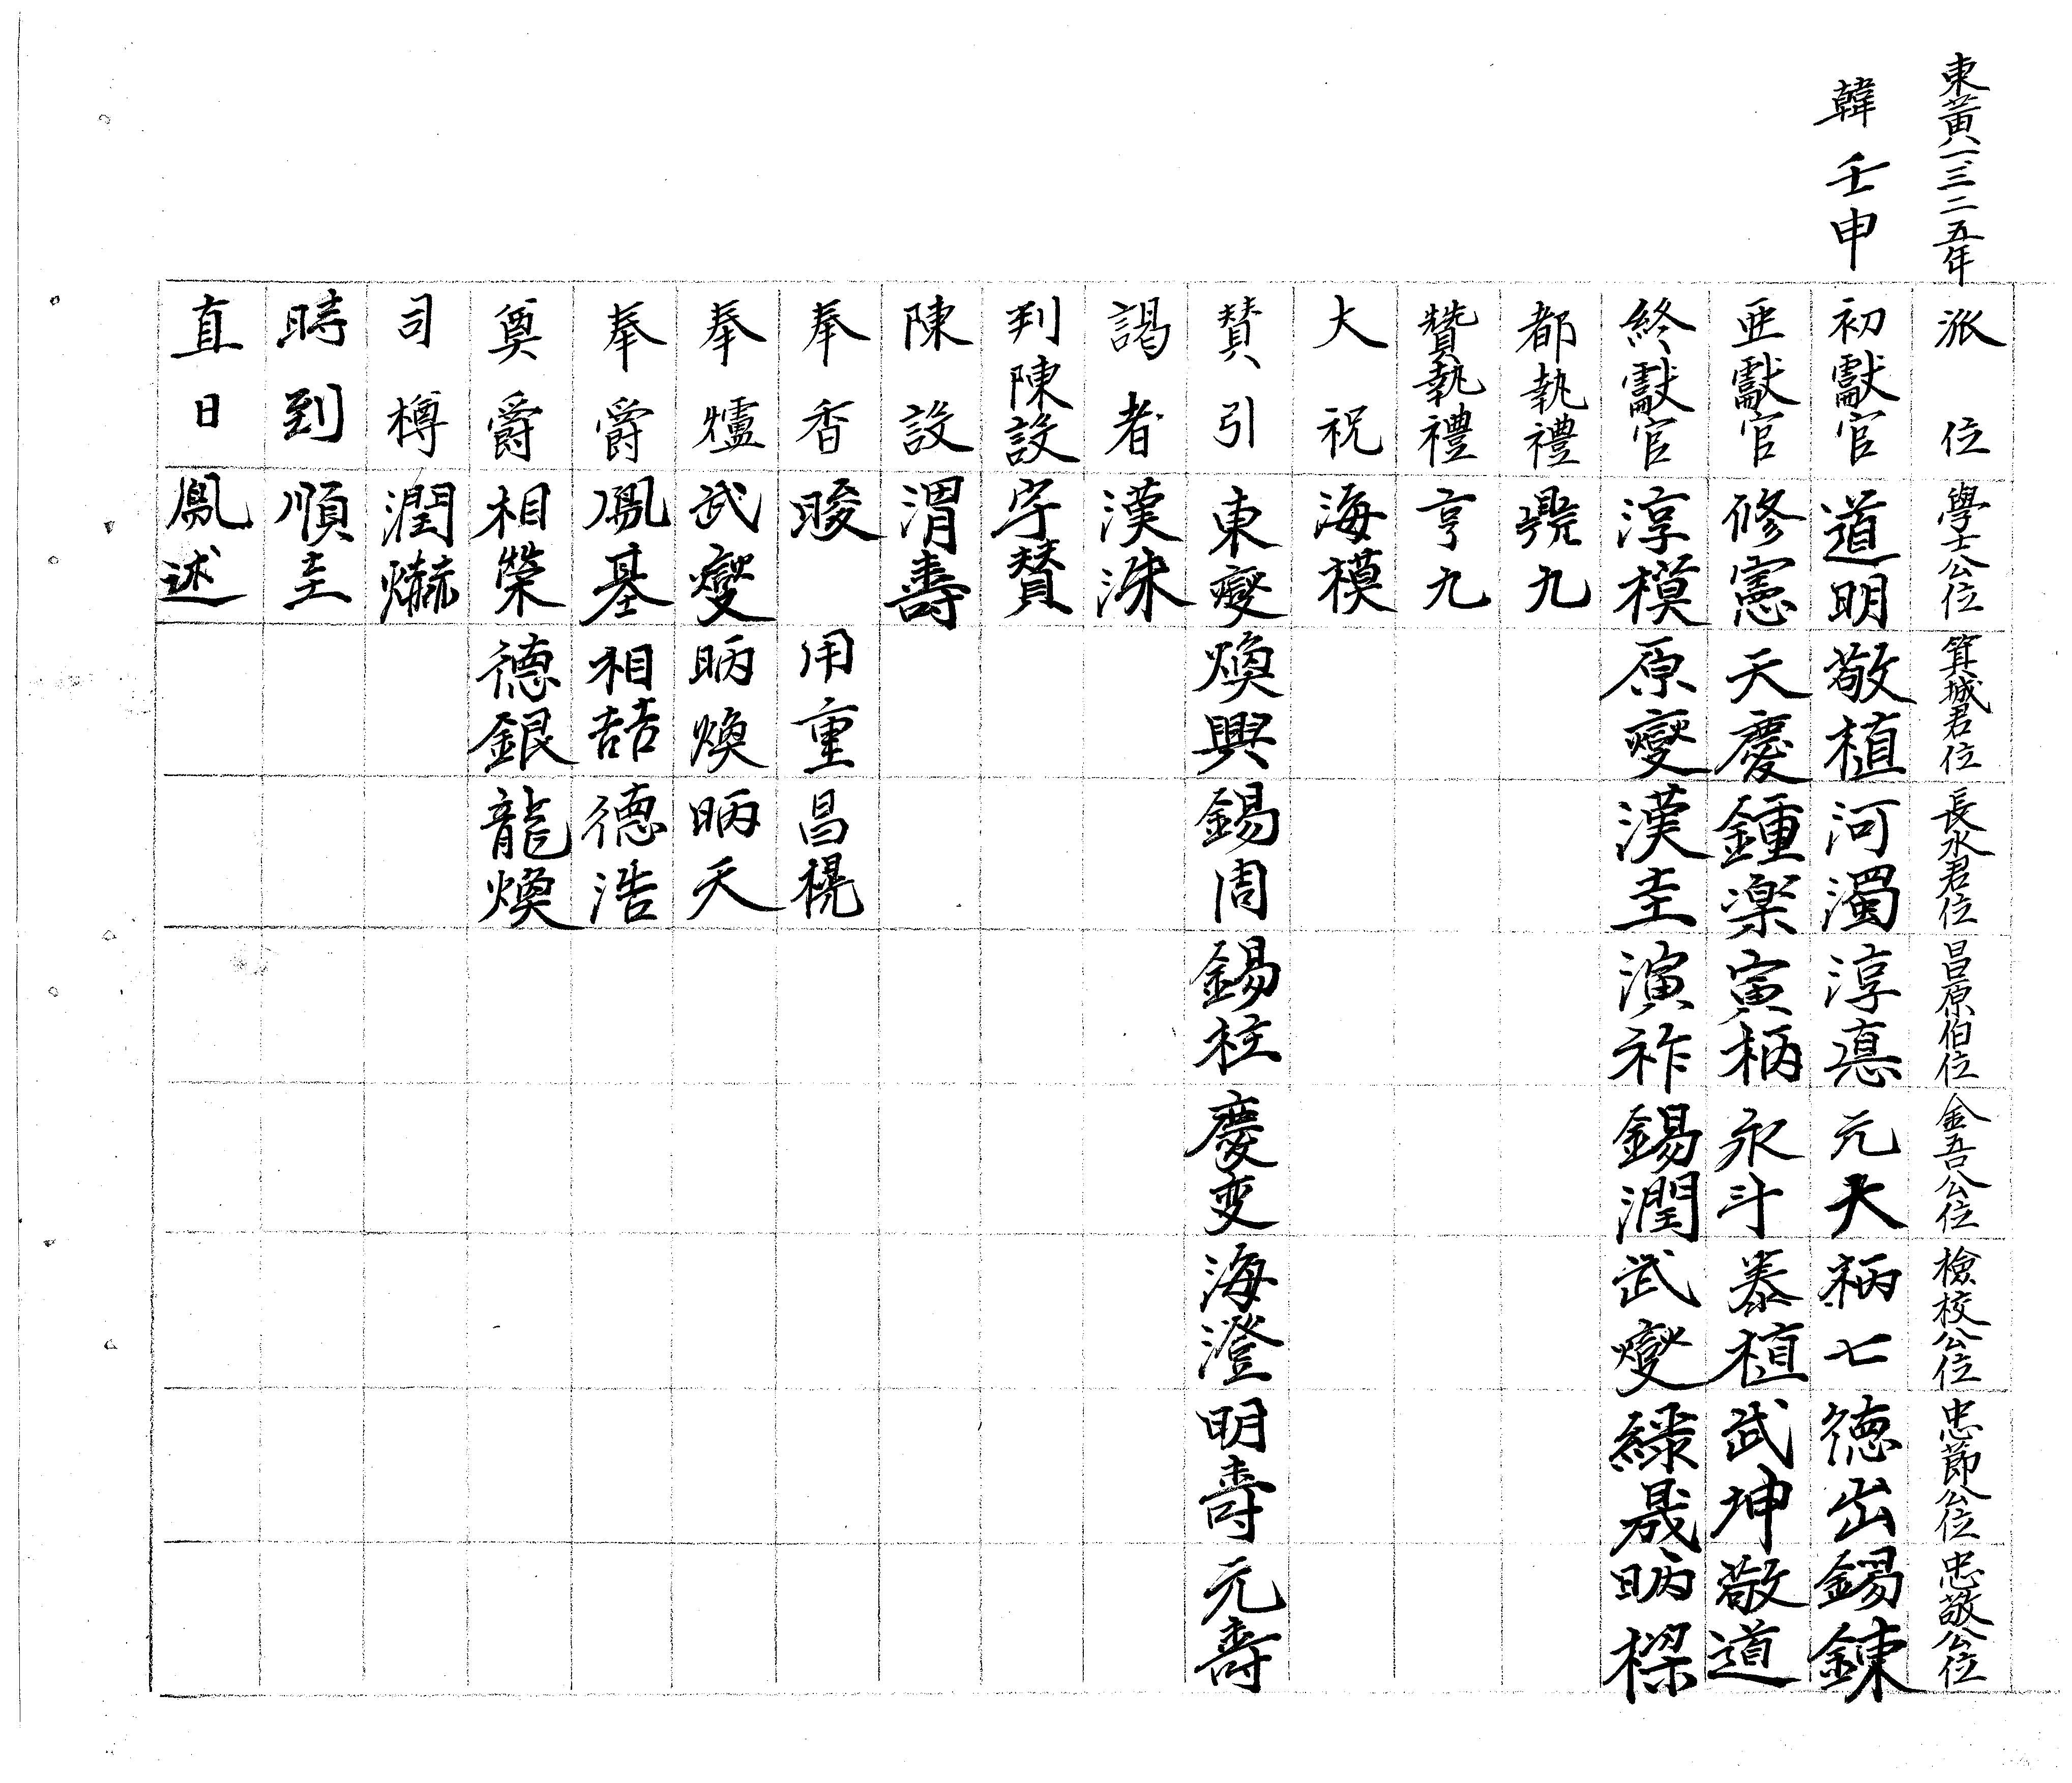 東黃一三二五年
韓壬申
派位 學士公位 箕城君位 長水君位 昌原伯位 金吾公位 檢校公位 忠節公位 忠敬公位
初獻官 道明 敬植 河濁 淳悳 元大 柄七 德出 錫鍊
亞獻官 修憲 天慶 鍾楽 寅柄 永斗 泰植 武坤 敬道
終獻官 淳模 原燮 漢圭 演祚 錫潤 武燮 綠晟 昞樑
都執禮 九
贊執禮 亨九
大祝 海模
賛引 東燮 煥興 錫周 錫柱 慶変 海澄 明壽 元壽
謁者 漢洙
判陳設 字賛
陳設 渭壽
奉香 晙 用重 昌槐
奉爐 武燮 昞煥 昞天
奉爵 鳳基 相喆 德浩
奠爵 相榮 德銀 龍煥
司樽 潤爀
時到 順圭
直日 鳳述